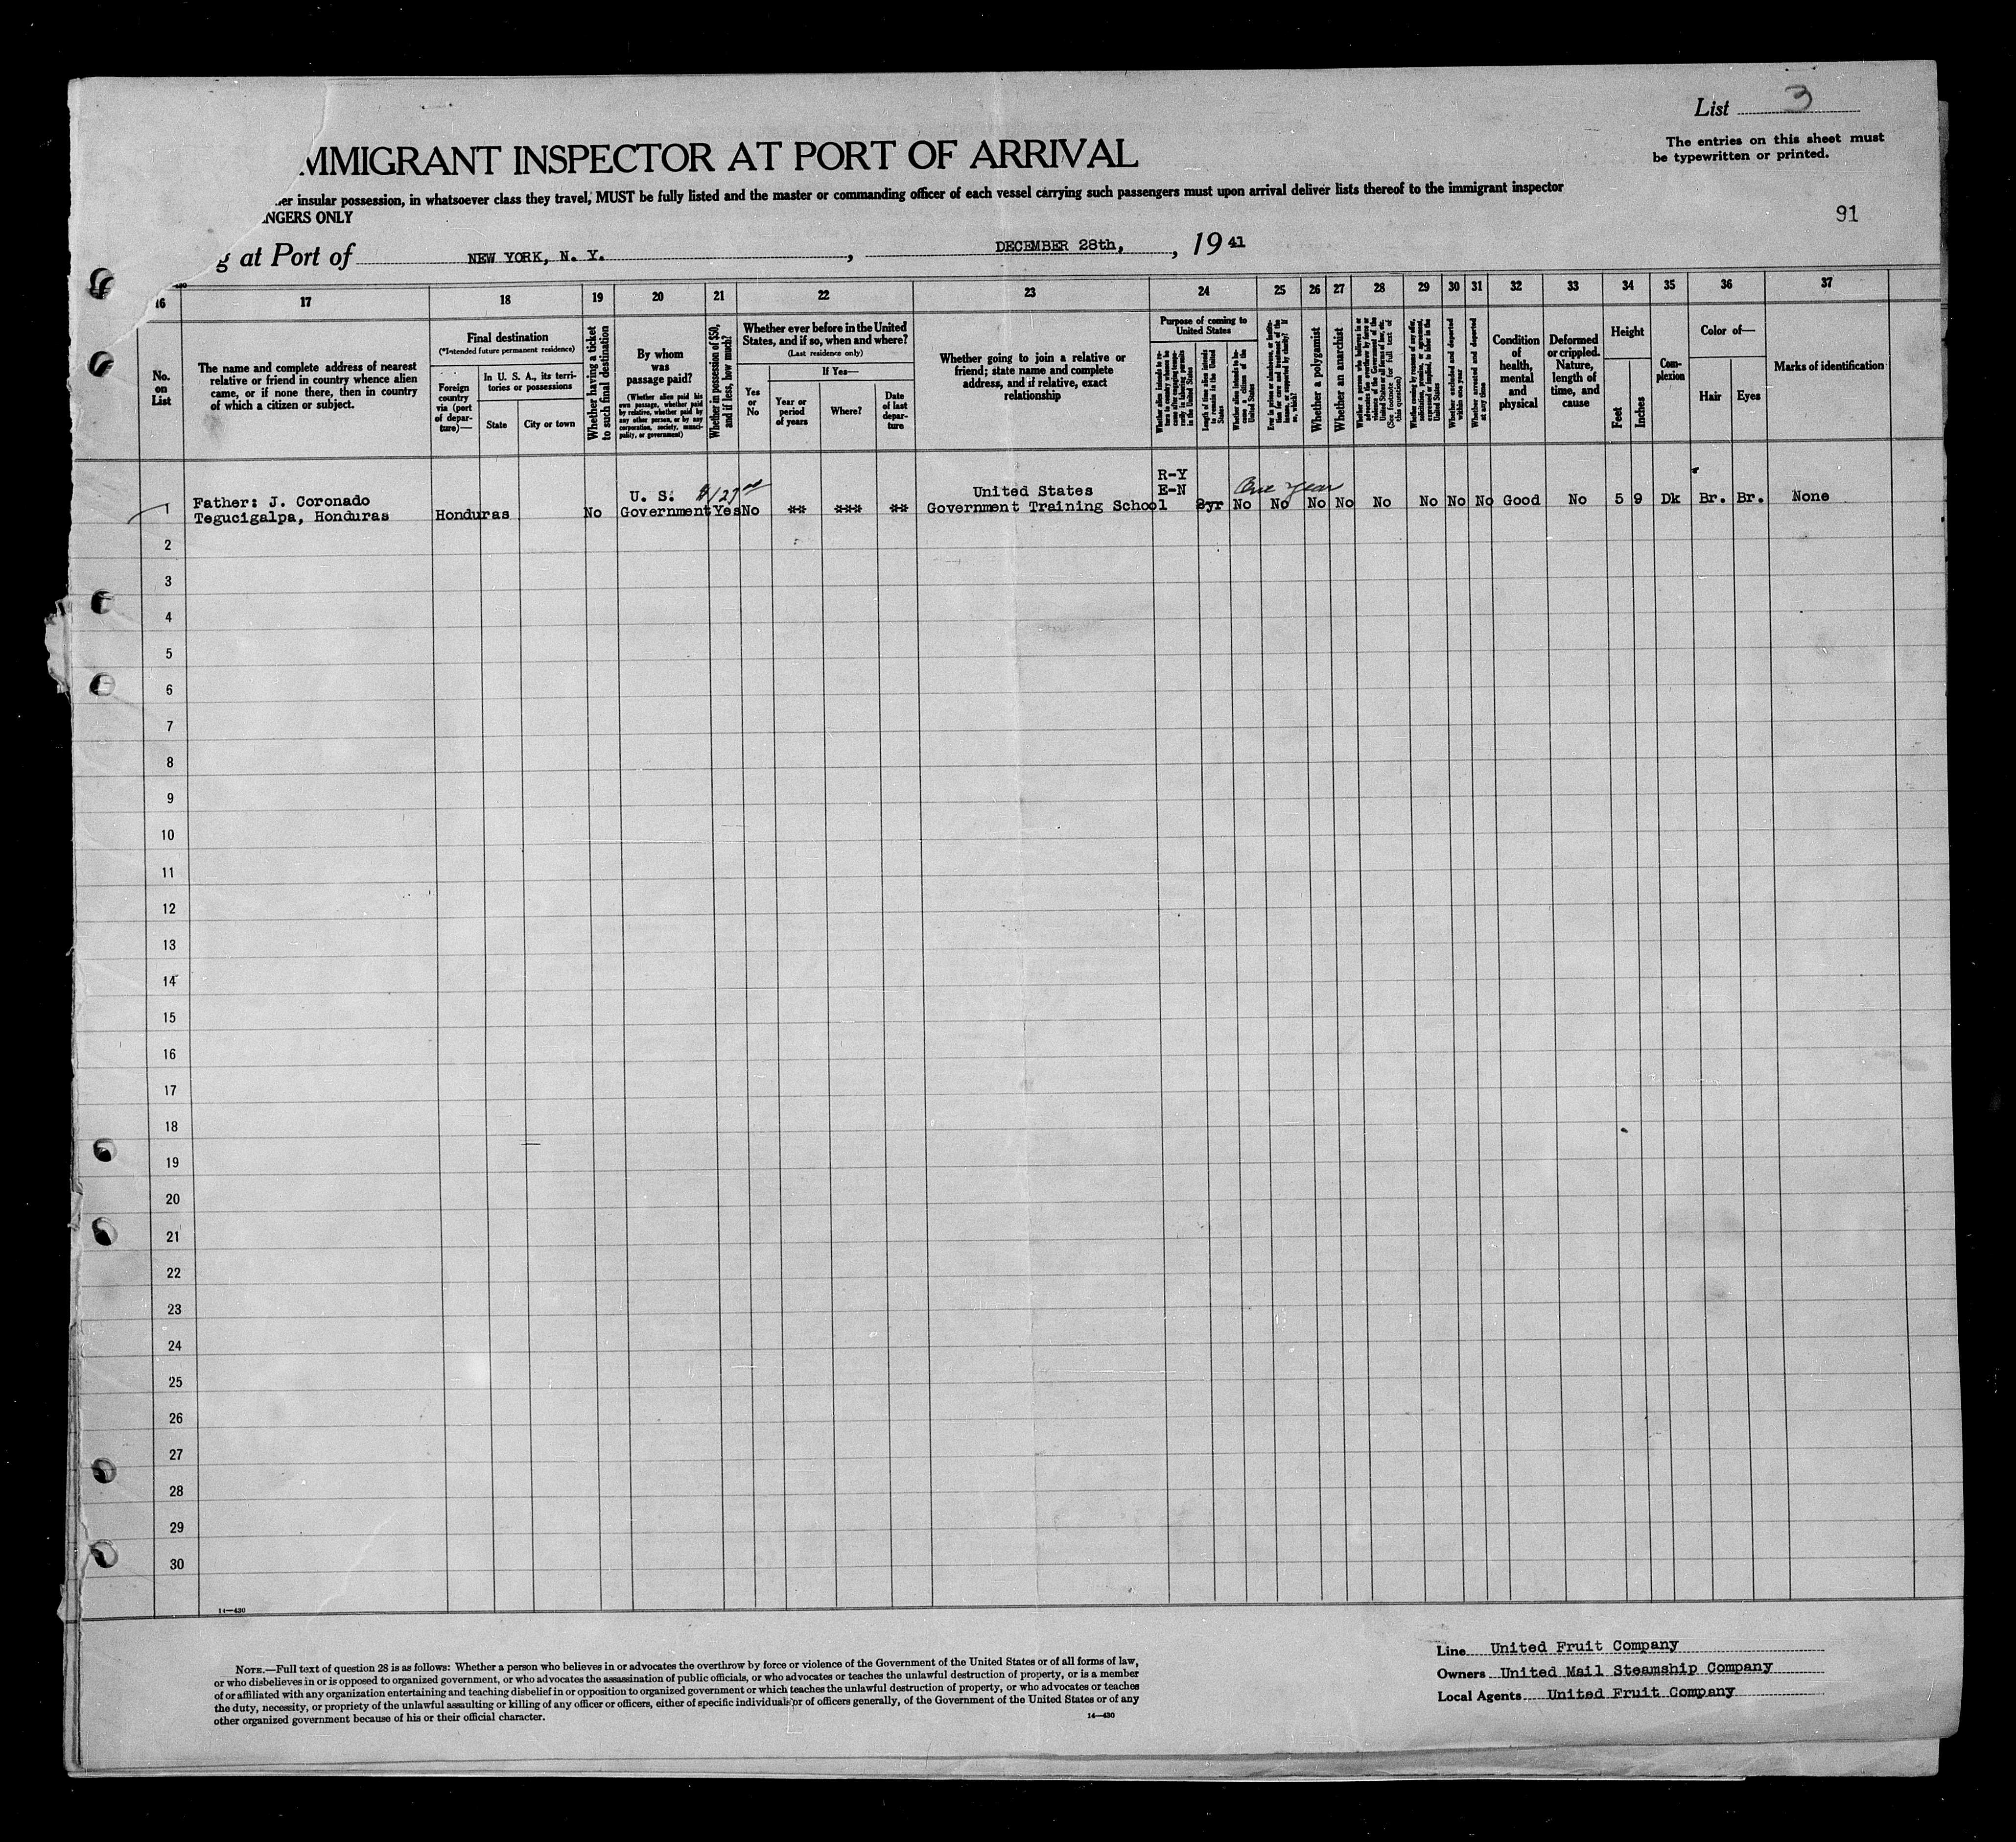 List 3
The entries on this sheet must
be typewritten or printed.
MMIGRANT INSPECTOR AT PORT OF ARRIVAL
her insular possession, in whatsoever class they travel, MUST be fully listed and the master or commanding officer of each vessel carrying such passengers must upon arrival deliver lists thereof to the immigrant inspector
NGERS ONLY
91
g at Port of NEW YORK, N. Y., DECEMBER 28th, 1941
16 17 18 19 20 21 22 23 24 25 26 27 28 29 30 31 32 33 34 35 36 37
No.
on
List
The name and complete address of nearest
relative or friend in country whence alien
came, or if none there, then in country
of which a citizen or subject.
Final destination
(*Intended future permanent residence)
Foreign
country
via (port
of depar-
ture)—
In U. S. A., its terri-
tories or possessions
State
City or town
Whether having a ticket
to such final destination
By whom
was
passage paid?
(Whether alien paid his
own passage, whether paid
by relative, whether paid by
any other person, or by any
corporation, society, munici-
pality, or government)
Whether in possession of $50,
and if less, how much?
Whether ever before in the United
States, and if so, when and where?
(Last residence only)
Yes
or
No
If Yes—
Year or
period
of years
Where?
Date
of last
depar-
ture
Whether going to join a relative or
friend; state name and complete
address, and if relative, exact
relationship
Purpose of coming to
United States
Length of time alien intends
to remain in the United
States
Whether alien intends to be-
come a citizen of the
United States
Whether a polygamist
Whether an anarchist
(See footnote for full text of
this question)
Whether excluded and deported
within one year
Whether arrested and deported
at any time
Condition
of
health,
mental
and
physical
Deformed
or crippled.
Nature,
length of
time, and
cause
Height
Feet
Inches
Com-
plexion
Color of—
Hair
Eyes
Marks of identification
1 Father: J. Coronado
Tegucigalpa, Honduras
Honduras
No
U. S.
Government
Yes
No
**
***
**
United States
Government Training School
R-Y
E-N
One year
2yr No No No No No No No No Good No 5 9 Dk Br. Br. None
2
3
4
5
6
7
8
9
10
11
12
13
14
15
16
17
18
19
20
21
22
23
24
25
26
27
28
29
30
14—430
NOTE.—Full text of question 28 is as follows: Whether a person who believes in or advocates the overthrow by force or violence of the Government of the United States or of all forms of law,
or who disbelieves in or is opposed to organized government, or who advocates the assassination of public officials, or who advocates or teaches the unlawful destruction of property, or is a member
of or affiliated with any organization entertaining and teaching disbelief in or opposition to organized government or which teaches the unlawful destruction of property, or who advocates or teaches
the duty, necessity, or propriety of the unlawful assaulting or killing of any officer or officers, either of specific individuals or of officers generally, of the Government of the United States or of any
other organized government because of his or their official character.
14—430
Line United Fruit Company
Owners United Mail Steamship Company
Local Agents United Fruit Company